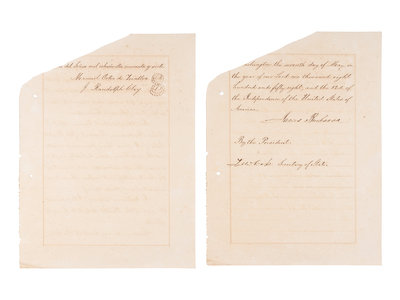 mil ochocientos cincuenta y siete
Manuel Ortiz de Zevallos
J. Randolph Clay
Washington the seventh day of May, in
the year of our Lord one thousand eight
hundred and fifty eight, and the 82d of
the Independence of the United States of
America.
James Buchanan
By the President:
Lewis Cass Secretary of State.